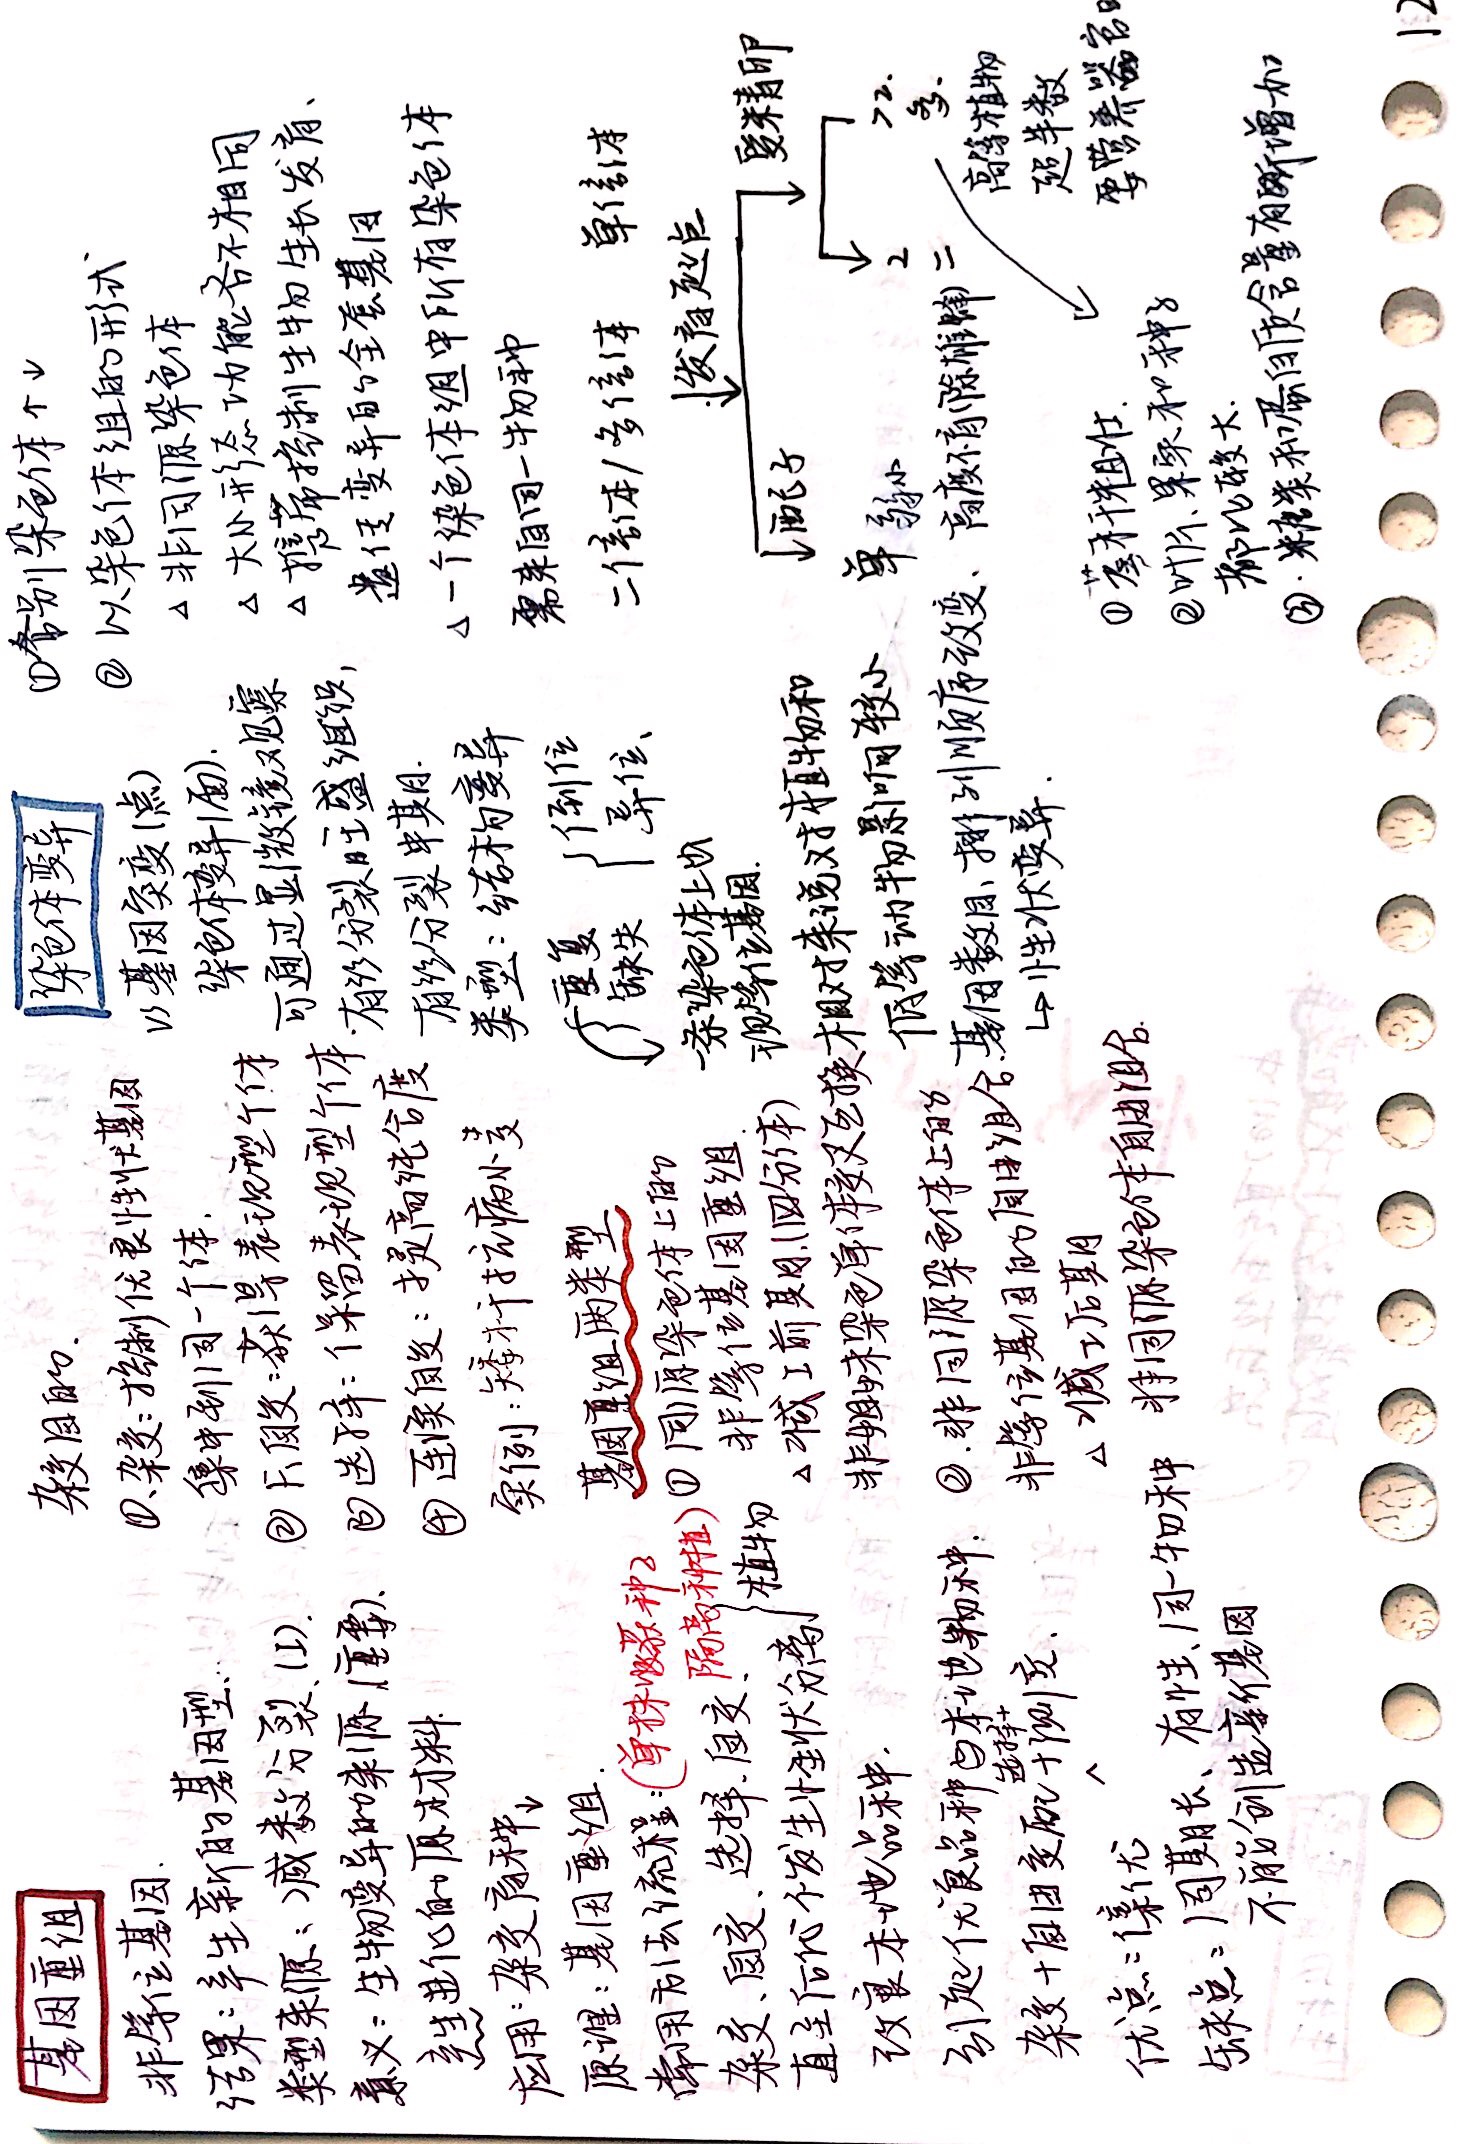 基因重组
非等位基因.
结果: 产生新的基因型.
类型来源: 减数分裂 (I).
意义: 生物变异的来源 (重要).
产生进化的原材料.
应用: 杂交育种↓
原理: 基因重组.
常用方法流程: (单株收获种子
隔离种植)
杂交、自交、选择、自交、
直至后代不发生性状分离 } 植物
改良本地品种.
引起优良品种与本地物种.
选择+
杂交+自由交配+测交.
优点: 集优
缺点: 周期长、有性、同一物种
不能创造新基因
杂交目的.
①、杂交: 控制优良性状基因
集中到同一个体.
② F₁自交: 获得表现型个体
③ 选择: 保留表现型个体.
④ 连续自交: 提高纯合度
实例: 矮杆抗病小麦
基因重组两类型
① 同源染色体上的
非等位基因重组
△ 减I前期.(四分体)
非姐妹染色单体交叉互换
②. 非同源染色体上的
非等位基因的自由组合
△ 减I后期
非同源染色体自由组合.
染色体变异
VS 基因突变(点)
染色体变异(面).
可通过显微镜观察
有丝分裂旺盛组织,
有丝分裂中期.
类型: 结构变异
重复 倒位
缺失 异位、
一条染色体上也
现等位基因.
相对来说对植物和
低等动物影响较小
基因数目、排列顺序改变、
↳ 性状变异.
①个别染色体↑↓
② 以染色体组的形式
△ 非同源染色体
△ 大小形态功能各不相同
△ 携带控制生物生长发育、
遗传变异的全套基因
△ 一个染色体组中所有染色体
需来自同一物种
二倍体/多倍体 单倍体
↓发育起点
配子 受精卵
单 2 >2.
弱小 二 多.
高度不育(除雄蜂)
高等植物
超半数
要营养器官的
① 茎秆粗壮.
②叶片、果实和种子
都比较大.
③. 糖类和蛋白质含量有所增加
12